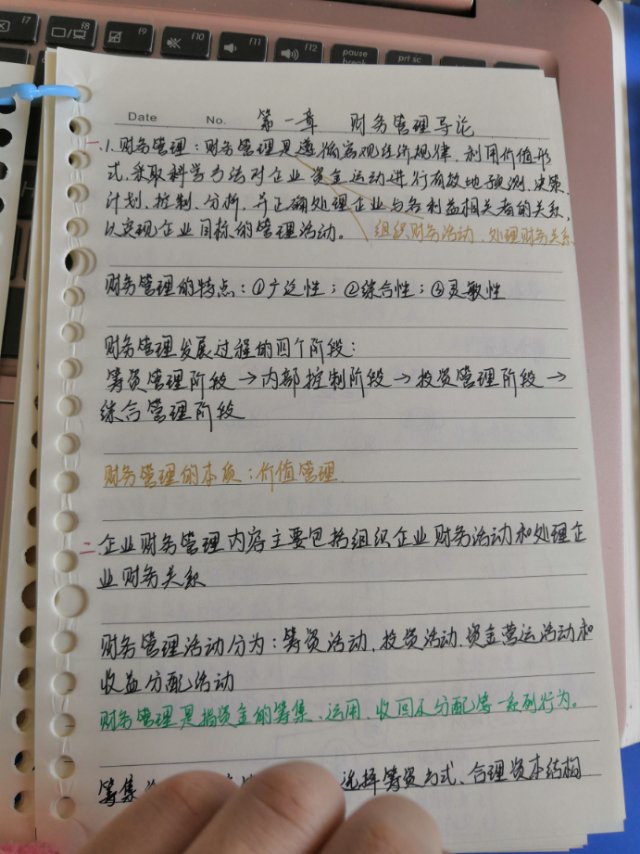 f7
f8
f9
f10
f11
f12
pause
break
prt sc
Date No. 第一章 财务管理导论
一 1.财务管理:财务管理是遵循客观经济规律、利用价值形
式、采取科学方法对企业资金运动进行有效地预测、决策、
计划、控制、分析,并正确处理企业与各利益相关者的关系,
以实现企业目标的管理活动。 组织财务活动、处理财务关系
财务管理的特点:①广泛性;②综合性;③灵敏性
财务管理发展过程的四个阶段:
筹资管理阶段→内部控制阶段→投资管理阶段→
综合管理阶段
财务管理的本质:价值管理
二 企业财务管理内容主要包括组织企业财务活动和处理企
业财务关系
财务管理活动分为:筹资活动、投资活动、资金营运活动和
收益分配活动
财务管理是指资金的筹集、运用、收回及分配等一系列行为。
筹集 选择筹资方式、合理资本结构